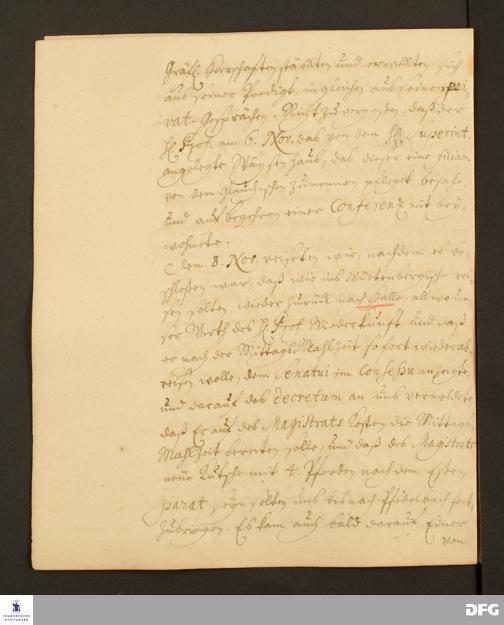 Gräfl. Herrschaften stärckten und erweckten sich
aus seiner Predigt, ingleichen aus seinen pri-
vat-Gesprächen. Nicht zu vergessen, daß der
H. Prof. am 6. Nov. das von dem H. Superint.
angelegte Waysenhaus, das dieser eine filiam
von dem Glauchischen zu nennen pfleget, besahe,
und auf begehren einer Conferenz mit bey-
wohnete.
Den 8. Nov. reiseten wir, nachdem es be-
schlossen war, daß wir ins Würtenbergische rei-
sen solten, wieder zurück nach Halle, allwo un-
ser Wirth des H. Prof. Wiederkunft und daß
er nach der Mittags-Mahlzeit so fort wieder ab-
reisen wolle, dem Senatui im Consessu anzeigte,
und darauf des decretum an uns vermeldete
daß Er auf des Magistrats Kosten die Mittags-
Mahlzeit bereiten solle, und daß des Magistrats
neue Kutsche mit 4. Pferden nach dem Essen
parat seyn solten uns bis nach Pfedelbach fort-
zubringen. Es kam auch bald darauf einer
von
FRANCKESCHE
STIFTUNGEN
DFG